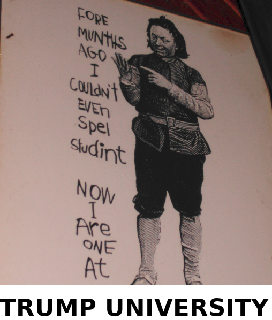 FORE
MUNTHS
AGO
I
COULDN'T
EVEN
SPEl
Studint
NOW
I
Are
ONE
At
TRUMP UNIVERSITY